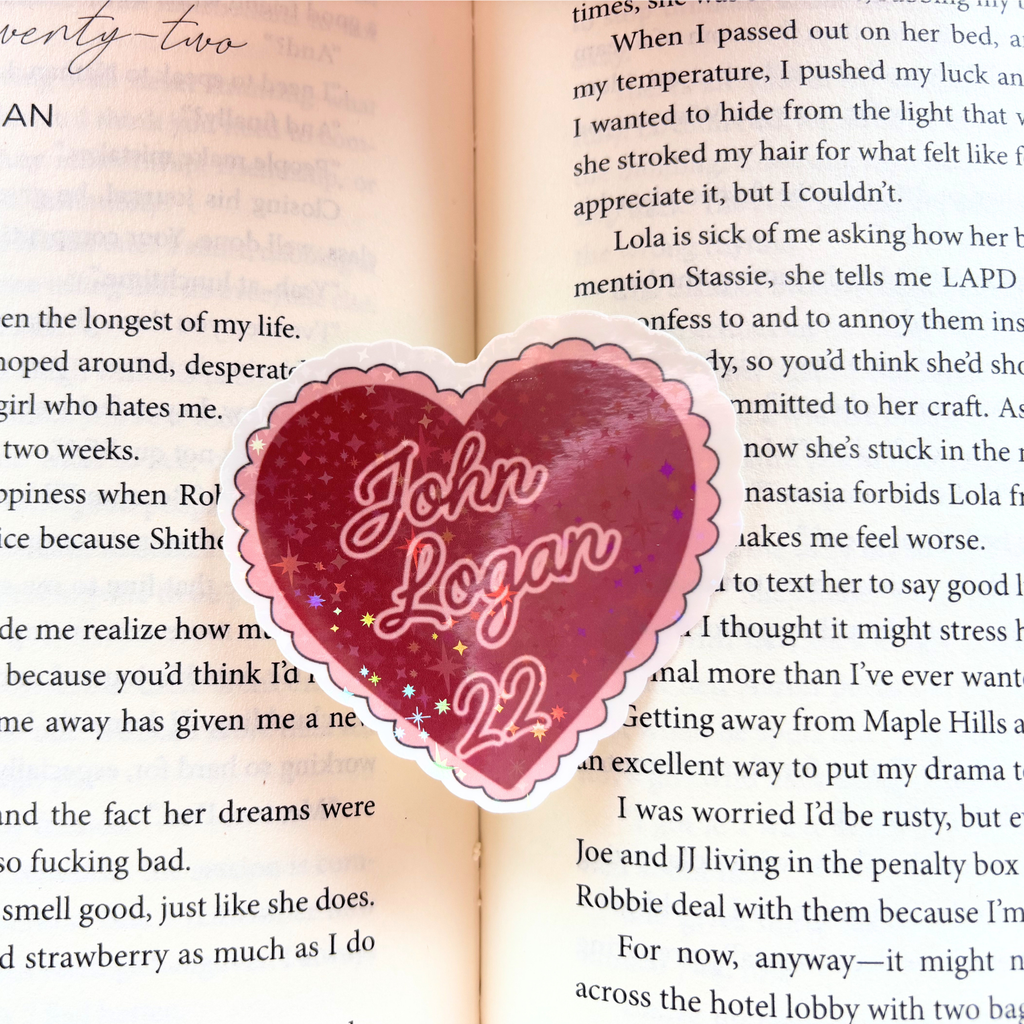 twenty-two
AN
en the longest of my life.
hoped around, desperate
girl who hates me.
two weeks.
ppiness when Rob
ice because Shithe
de me realize how mu
because you'd think I'd
me away has given me a new
and the fact her dreams were
so fucking bad.
smell good, just like she does.
d strawberry as much as I do
John
Logan
22
times, she was
When I passed out on her bed, a
my temperature, I pushed my luck an
I wanted to hide from the light that w
she stroked my hair for what felt like f
appreciate it, but I couldn't.
Lola is sick of me asking how her b
mention Stassie, she tells me LAPD
onfess to and to annoy them ins
dy, so you'd think she'd sho
mmitted to her craft. As
now she's stuck in the
nastasia forbids Lola fr
akes me feel worse.
to text her to say good l
I thought it might stress h
nal more than I've ever wante
Getting away from Maple Hills a
an excellent way to put my drama to
I was worried I'd be rusty, but e
Joe and JJ living in the penalty box
Robbie deal with them because I'm
For now, anyway—it might n
across the hotel lobby with two bag